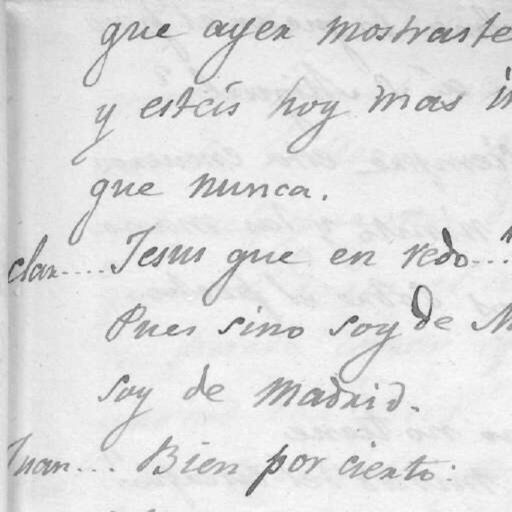 que ayer mostraste
y estais hoy mas
que nunca.
clar.... Jesus que en redo...
Pues sino soy de
soy de Madrid.
Juan... Bien por cierto: